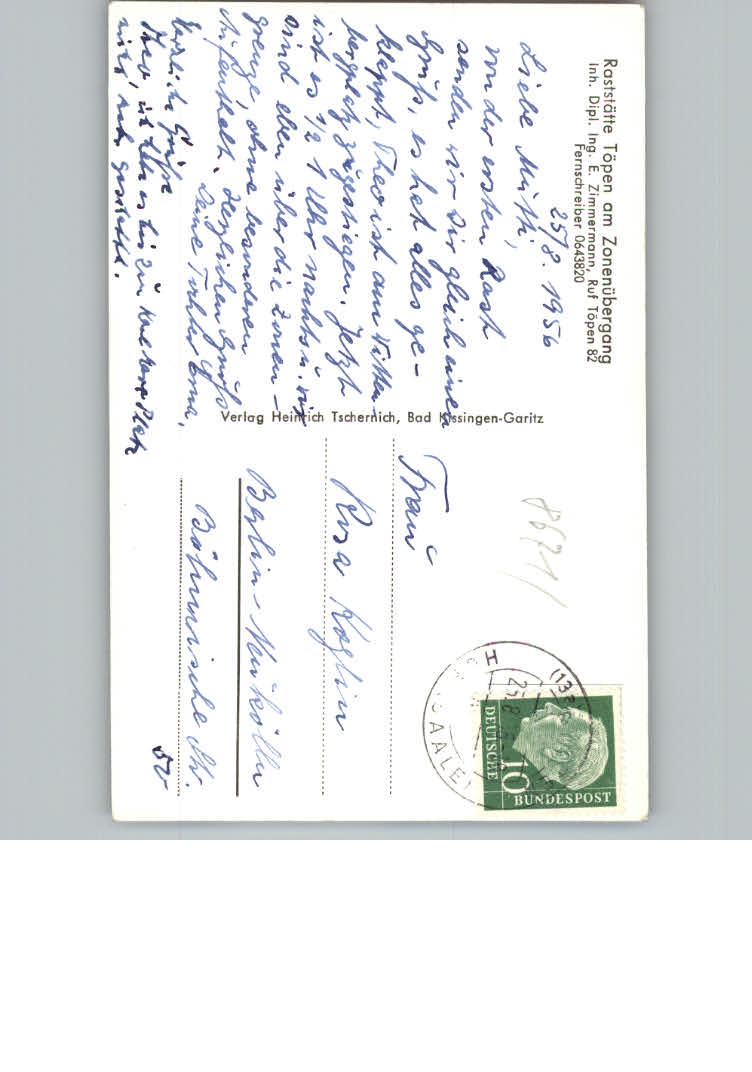 Raststätte Töpen am Zonenübergang
Inh. Dipl. Ing. E. Zimmermann, Ruf Töpen 82
Fernschreiber 0643820
25/8. 1956
Liebe Mutti,
von der ersten Rast
senden wir Dir gleich einen
Gruß, es hat alles ge-
klappt, Theo ist am Witten-
bergplatz zugestiegen. Jetzt
ist es 1/2 1 Uhr nachts u. wir
sind eben über die Zonen-
grenze, ohne besonderen
Aufenthalt. Herzlichen Gruß
Deine Tochter Erna,
Herzliche Grüße
Theo, ich
mich sehr gestaunt.
Verlag Heinrich Tschernich, Bad Kissingen-Garitz
8671
Frau
Rosa Köglin
Berlin-Neukölln
Böhmische Str.
52
(13a)
H
(SAALE)
DEUTSCHE
10
BUNDESPOST